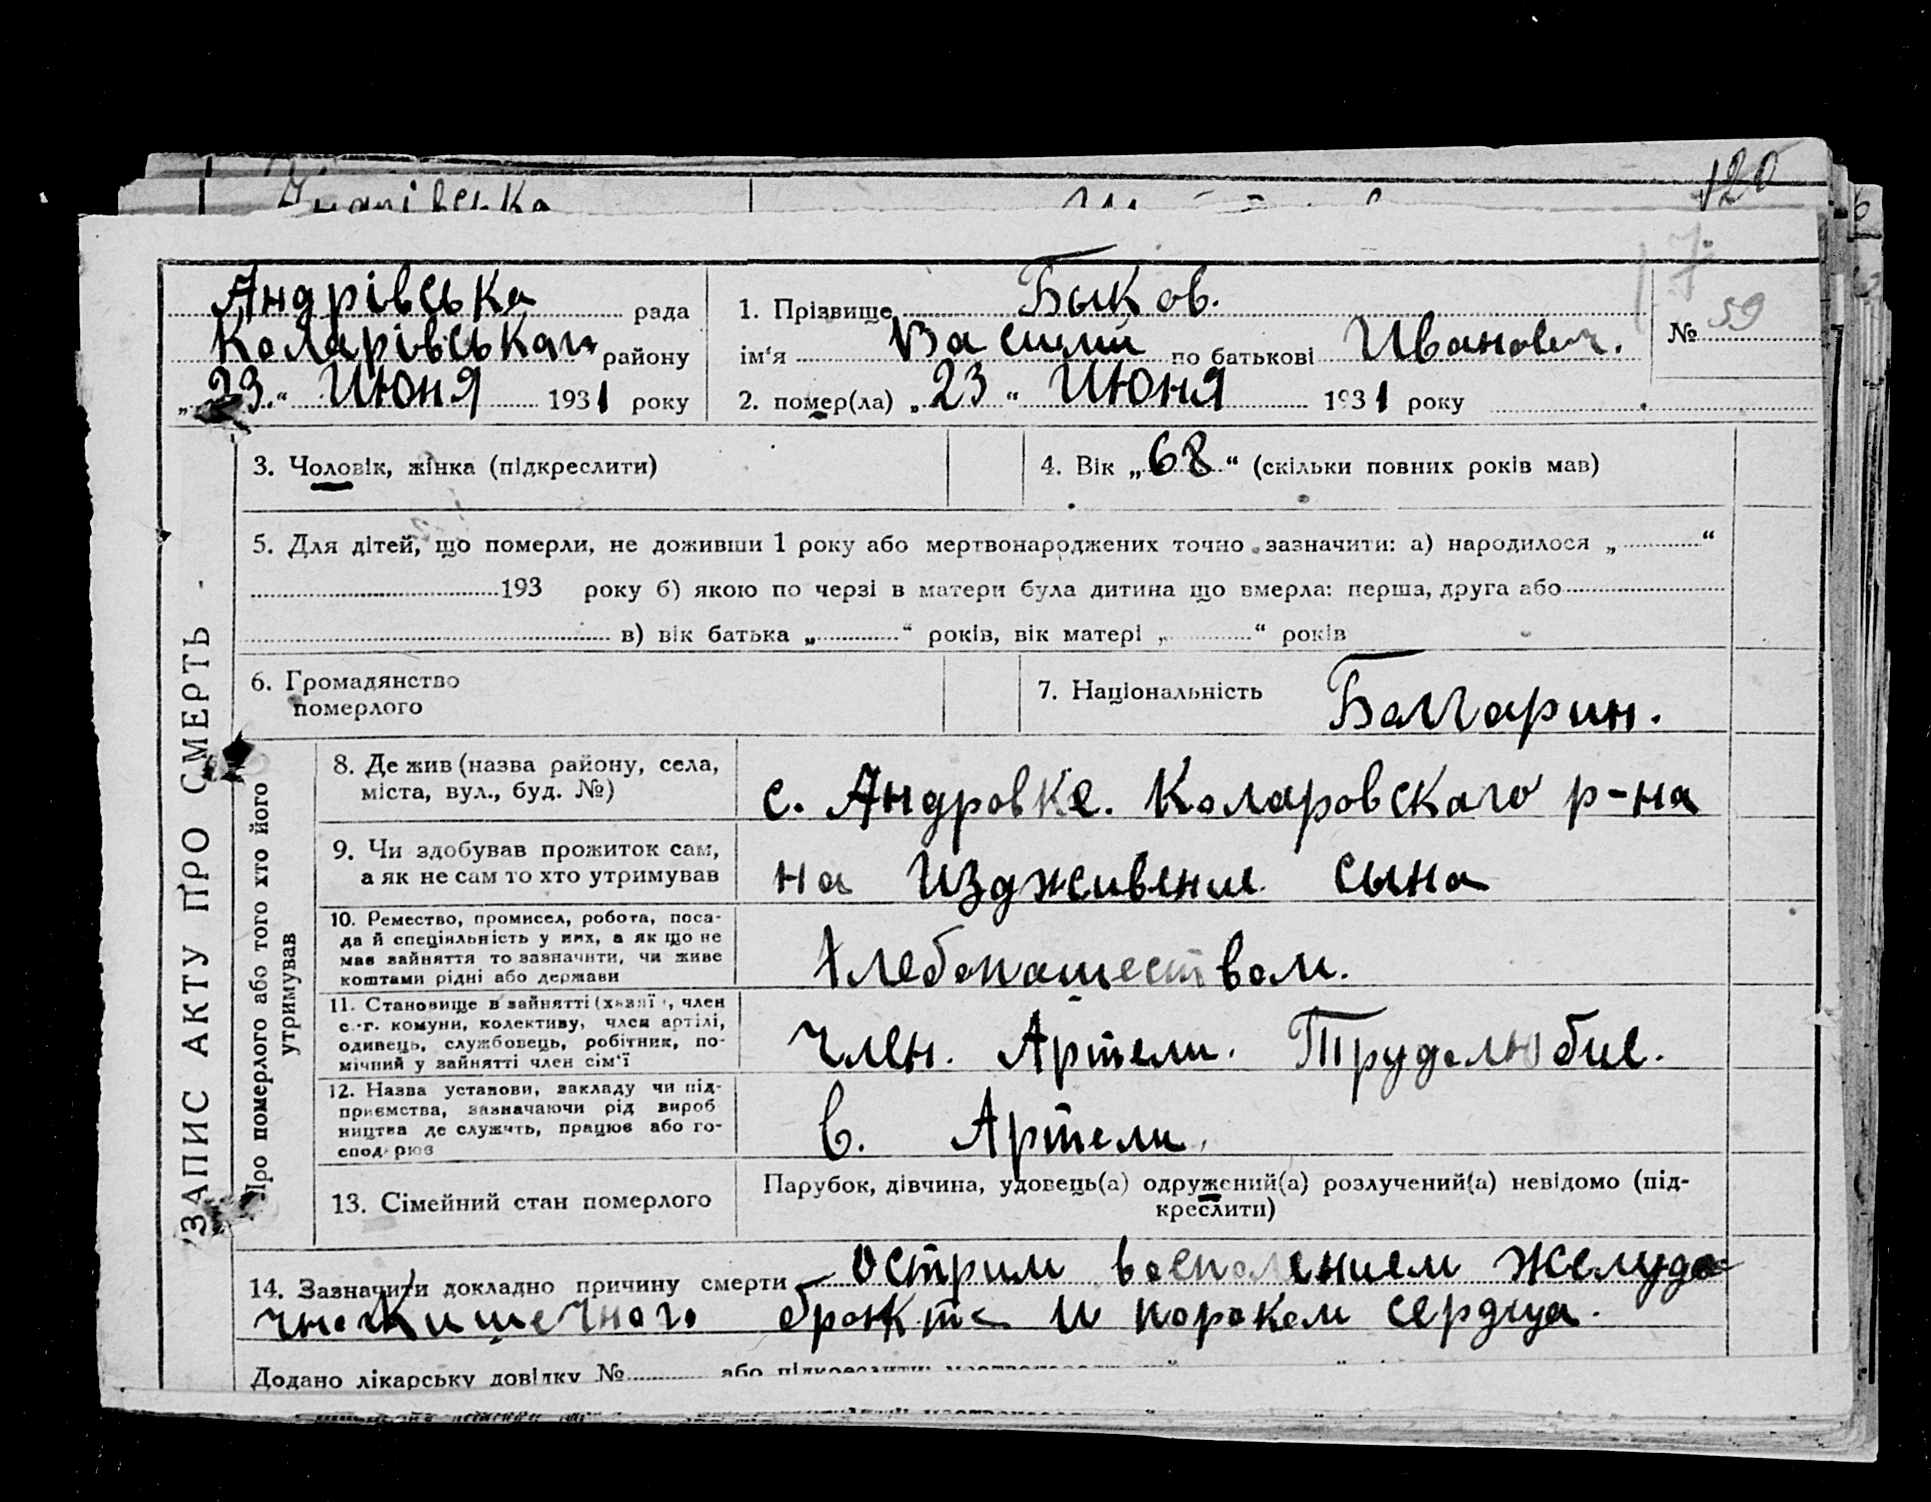 120
17.
59
Андрівська рада
Коларівськаго району
„23.“ Июня 1931 року
1. Прізвище Быков.
ім‘я Василий по батькові Иванович.
№
2. помер(ла) „23“ Июня 1931 року
3. Чоловік, жінка (підкреслити)
4. Вік „68“ (скільки повних років мав)
5. Для дітей, що померли, не доживши 1 року або мертвонароджених точно зазначити: а) народилося „ “
193 року б) якою по черзі в матери була дитина що вмерла: перша, друга або
в) вік батька „ “ років, вік матері „ “ років
6. Громадянство
померлого
7. Національність Болгарин.
ЗАПИС АКТУ ПРО СМЕРТЬ
Про померлого або того хто його
утримував
8. Де жив (назва району, села,
міста, вул., буд. №)
с. Андровке. Коларовскаго р-на
9. Чи здобував прожиток сам,
а як не сам то хто утримував
на издживение сына
10. Ремество, промисел, робота, поса-
да й спеціяльність у них, а як що не
мав зайняття то зазначити, чи живе
коштами рідні або держави
Хлебопашеством.
11. Становище в зайнятті (хазяї , член
с.-г. комуни, колективу, член артілі,
одинець, службовець, робітник, по-
мічний у зайнятті член сім‘ї
член. Артели. Трудолюбие.
12. Назва установи, закладу чи під-
приємства, зазначаючи рід вироб
ництва де служить, працює або го-
спод рює
в. Артели.
13. Сімейний стан померлого
Парубок, дівчина, удовець(а) одружений(а) розлучений(а) невідомо (під-
креслити)
14. Зазначити докладно причину смерти Острим восполением Желудо-
чно Кишечного тракта и пороком сердца.
Додано лікарську довідку № або підкреслити: